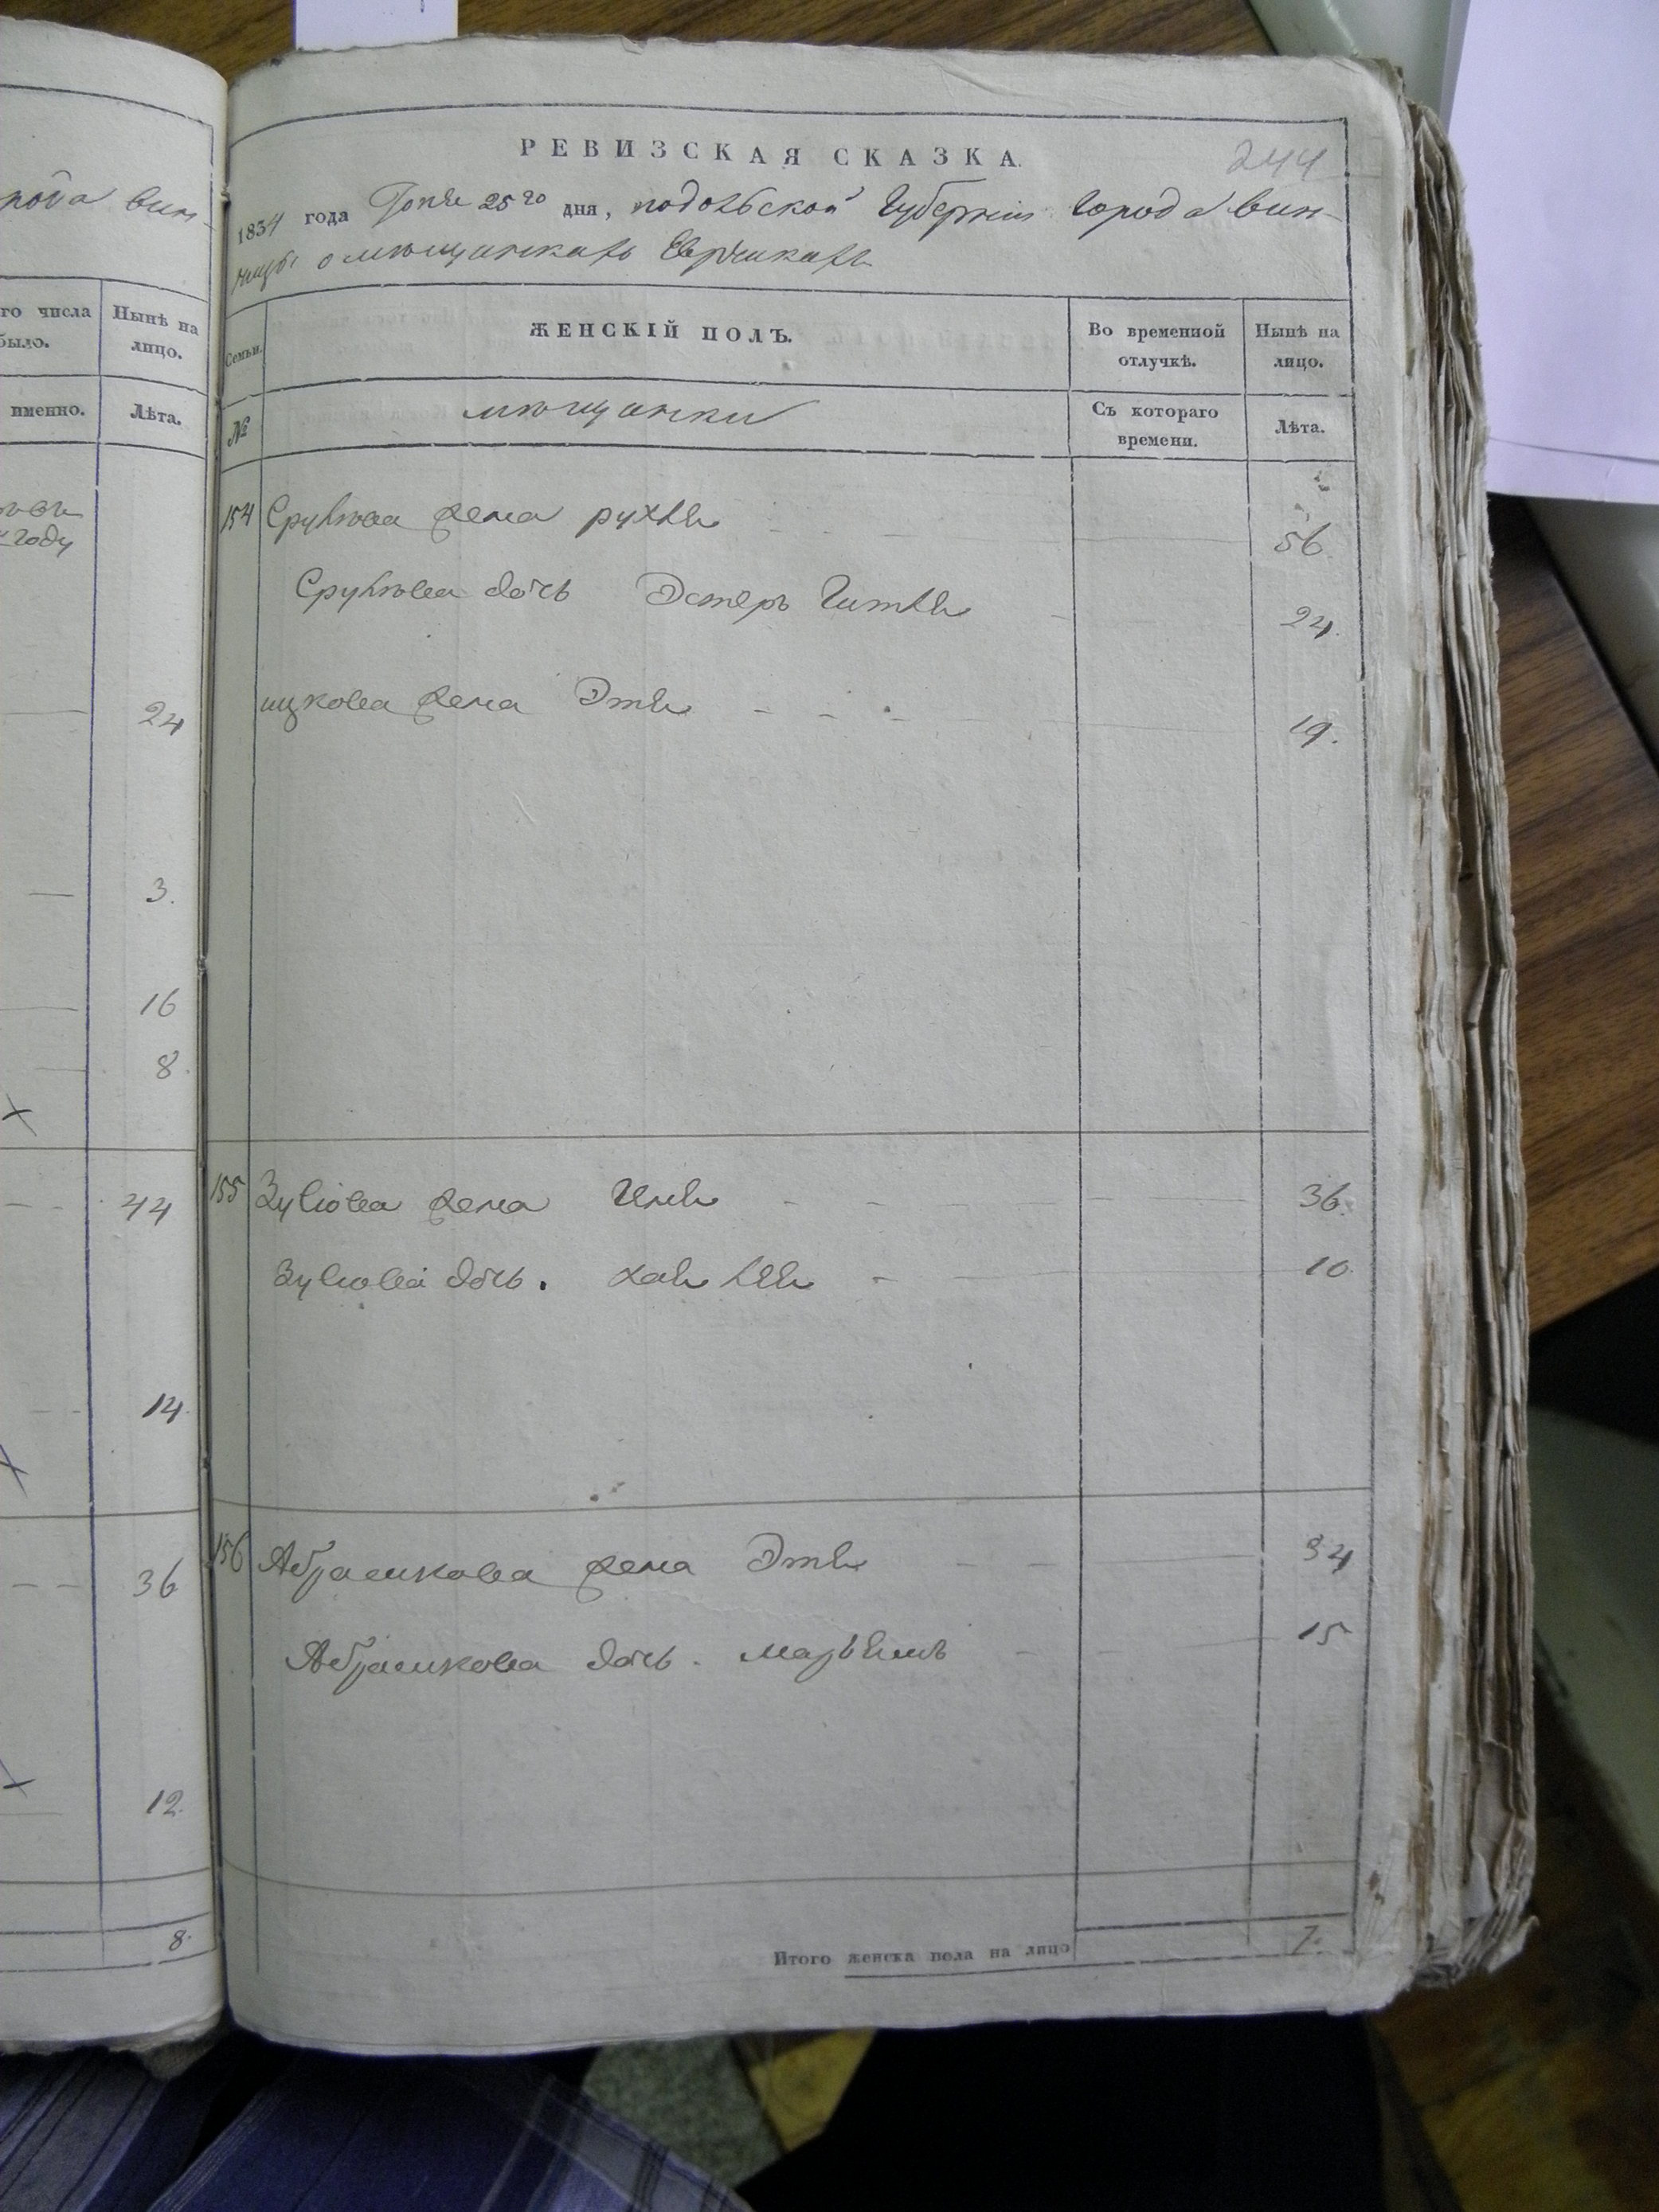 нова вин-
го числа
было.
Нынѣ на
лицо.
именно.
Лѣта.
году
24
3.
16
8.
44
14.
36
12.
8.
РЕВИЗСКАЯ СКАЗКА.
244
1834 года Юня 25го дня, подольской Губерніи города вин-
ницы о мѣщанкахъ Еврѣйкахъ
Семьи.
ЖЕНСКІЙ ПОЛЪ.
Во временной
отлучкѣ.
Нынѣ на
лицо.
№
мѣщанки
Съ котораго
времени.
Лѣта.
154 Срулѣва жена рухля 56.
Срулѣва дочь Эстеръ Гитля 24.
ицкова жена Этя 19.
155 Зуслова жена 36.
Зуслова дочь. хая лея 10.
156 Абрамкова жена Этя 34
Абрамкова дочь. марьямъ 15
Итого женска пола на лицо 7.